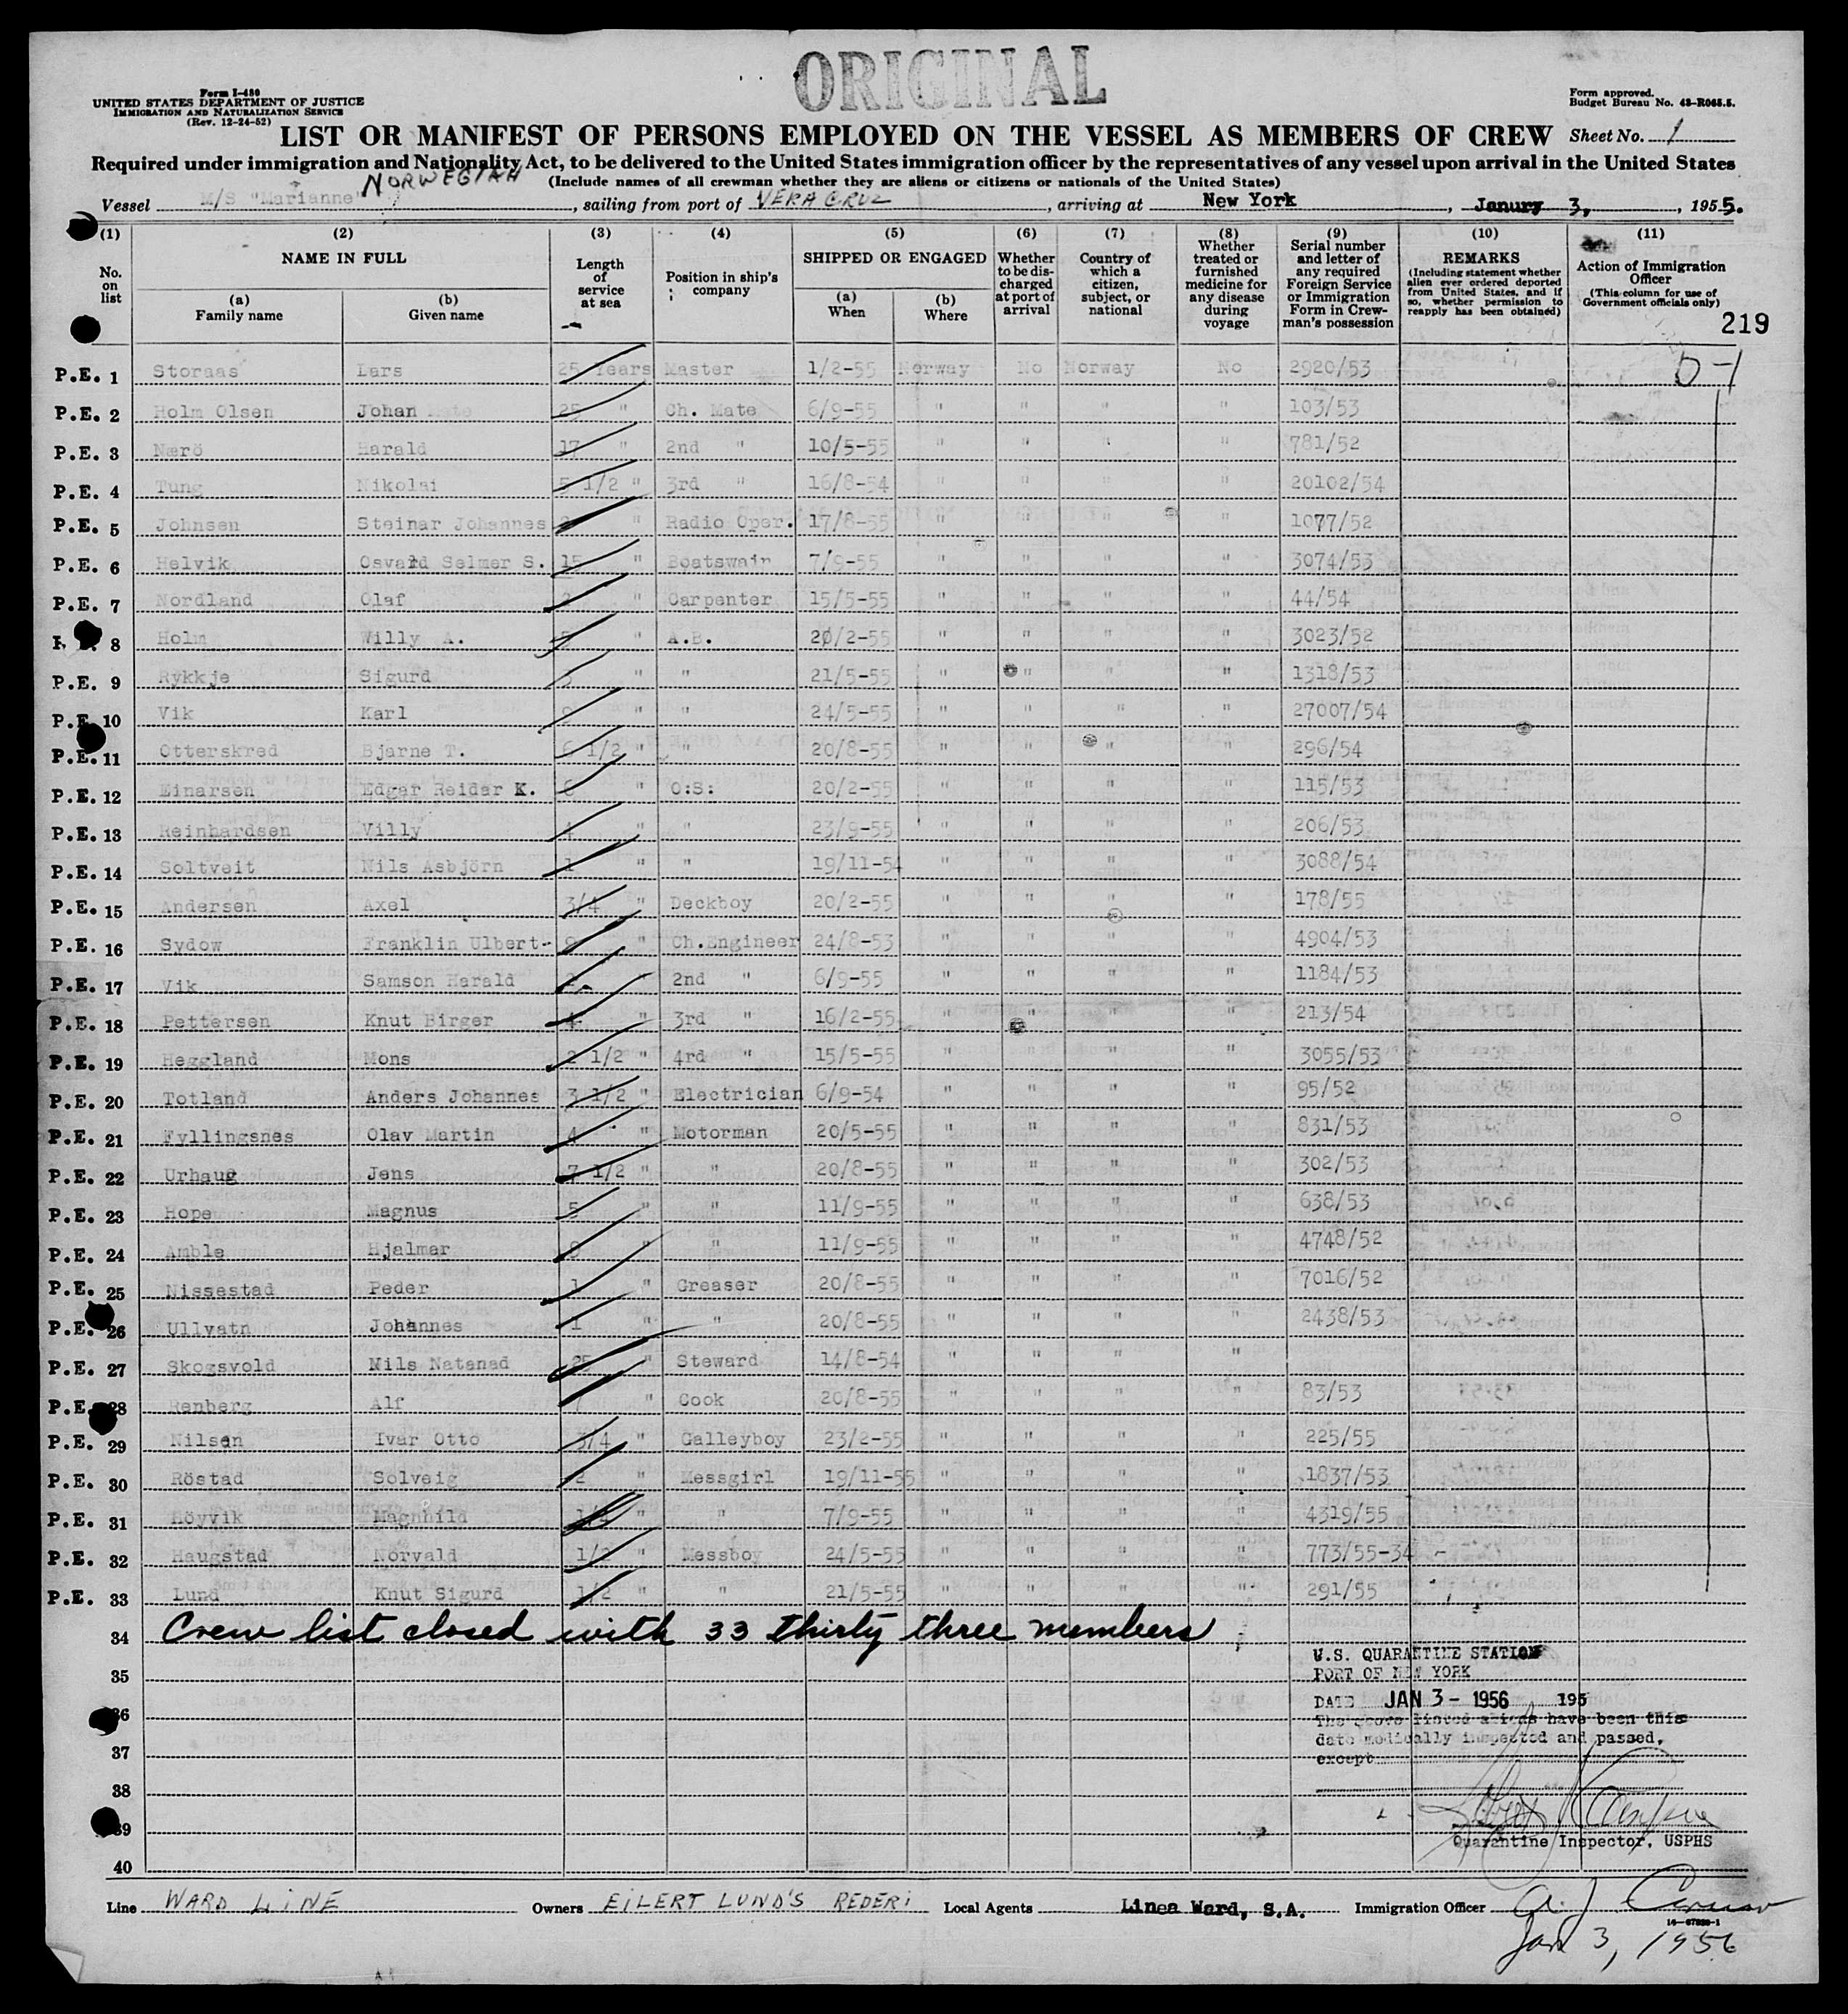 ORIGINAL
Form I-480
UNITED STATES DEPARTMENT OF JUSTICE
IMMIGRATION AND NATURALIZATION SERVICE
(Rev. 12-24-52)
Form approved.
Budget Bureau No. 43-R065.5.
LIST OR MANIFEST OF PERSONS EMPLOYED ON THE VESSEL AS MEMBERS OF CREW Sheet No. 1
Required under immigration and Nationality Act, to be delivered to the United States immigration officer by the representatives of any vessel upon arrival in the United States
(Include names of all crewman whether they are aliens or citizens or nationals of the United States)
Vessel M/S "Marianne" NORWEGIAN, sailing from port of VERA CRUZ, arriving at New York, Janury 3, 1955.
(1) (2) (3) (4) (5) (6) (7) (8) (9) (10) (11)
No. on list NAME IN FULL Length of service at sea Position in ship's company SHIPPED OR ENGAGED Whether to be discharged at port of arrival Country of which a citizen, subject, or national Whether treated or furnished medicine for any disease during voyage Serial number and letter of any required Foreign Service or Immigration Form in Crewman's possession REMARKS (Including statement whether alien ever ordered deported from United States, and if so, whether permission to reapply has been obtained) Action of Immigration Officer (This column for use of Government officials only)
(a) Family name (b) Given name (a) When (b) Where
219
P.E. 1 Storaas Lars 25 Years Master 1/2-55 Norway No Norway No 2920/53 D-1
P.E. 2 Holm Olsen Johan 25 " Ch. Mate 6/9-55 " " " " 103/53
P.E. 3 Nærö Harald 17 " 2nd " 10/5-55 " " " " 781/52
P.E. 4 Tung Nikolai 5 1/2 " 3rd " 16/8-54 " " " " 20102/54
P.E. 5 Johnsen Steinar Johannes " Radio Oper. 17/8-55 " " " " 1077/52
P.E. 6 Helvik Osvald Selmer S. 15 " Boatswain 7/9-55 " " " " 3074/53
P.E. 7 Nordland Olaf " Carpenter 15/5-55 " " " " 44/54
8 Holm Willy A. 5 " A.B. 20/2-55 " " " " 3023/52
P.E. 9 Rykkje Sigurd 3 " " 21/5-55 " " " " 1318/53
P.E. 10 Vik Karl 9 " " 24/5-55 " " " " 27007/54
P.E. 11 Otterskred Bjarne T. 6 1/2 " " 20/8-55 " " " " 296/54
P.E. 12 Einarsen Edgar Reidar K. 6 " O:S: 20/2-55 " " " " 115/53
P.E. 13 Reinhardsen Villy 4 " " 23/9-55 " " " " 206/53
P.E. 14 Soltveit Nils Asbjörn 1 " " 19/11-54 " " " " 3088/54
P.E. 15 Andersen Axel 3/4 " Deckboy 20/2-55 " " " " 178/55
P.E. 16 Sydow Franklin Ulbert- 9 " Ch.Engineer 24/8-53 " " " " 4904/53
P.E. 17 Vik Samson Harald 2 " 2nd " 6/9-55 " " " " 1184/53
P.E. 18 Pettersen Knut Birger 4 " 3rd " 16/2-55 " " " " 213/54
P.E. 19 Heggland Mons 2 1/2 " 4rd " 15/5-55 " " " " 3055/53
P.E. 20 Totland Anders Johannes 3 1/2 " Electrician 6/9-54 " " " " 95/52
P.E. 21 Fyllingsnes Olav Martin 4 " Motorman 20/5-55 " " " " 831/53
P.E. 22 Urhaug Jens 7 1/2 " " 20/8-55 " " " " 302/53
P.E. 23 Hope Magnus 5 " " 11/9-55 " " " " 638/53
P.E. 24 Amble Hjalmar " " 11/9-55 " " " " 4748/52
P.E. 25 Nissestad Peder 1 " Greaser 20/8-55 " " " " 7016/52
P.E. 26 Ullvatn Johannes 1 " " 20/8-55 " " " " 2438/53
P.E. 27 Skogsvold Nils Natanad 25 " Steward 14/8-54 " " " "
P.E. 28 Renberg Alf 7 " Cook 20/8-55 " " " " 83/53
P.E. 29 Nilsen Ivar Otto 3/4 " Galleyboy 23/2-55 " " " " 225/55
P.E. 30 Röstad Solveig 2 " Messgirl 19/11-55 " " " " 1837/53
P.E. 31 Höyvik Magnhild 1/4 " " 7/9-55 " " " " 4319/55
P.E. 32 Haugstad Norvald 1/2 " Messboy 24/5-55 " " " " 773/55-34
P.E. 33 Lund Knut Sigurd 1/2 " " 21/5-55 " " " " 291/55
34 Crew list closed with 33 thirty three members
35
36
37
38
39
40
U.S. QUARANTINE STATION
PORT OF NEW YORK
DATE JAN 3 - 1956 195
The above listed aliens have been this
date medically inspected and passed,
except
Quarantine Inspector, USPHS
Line WARD LINE Owners EILERT LUND'S REDERI Local Agents Linea Ward, S.A. Immigration Officer
16-67820-1
Jan 3, 1956